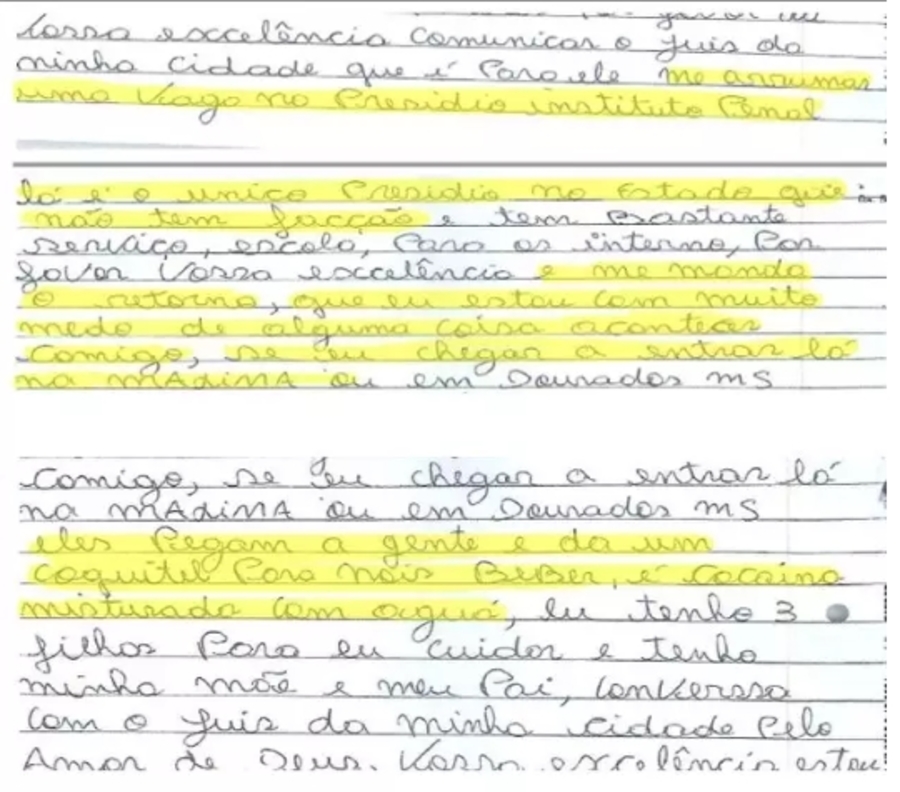 Vossa excelência comunicar o juis da
minha cidade que é Para ele me arrumar
uma Vaga no Presidio instituto Penal
lá é o unico Presidio no Estado que
não tem facção e tem Bastante
serviço, escola, Para os interno, Por
favor Vossa excelência e me manda
o retorno, que eu estou com muito
medo de alguma coisa acontecer
comigo, se eu chegar a entrar lá
na mÁximA ou em Dourados ms
comigo, se eu chegar a entrar lá
na mÁximA ou em Dourados ms
eles Pegam a gente e da um
coquitel Para nois BeBer, é cocaina
misturada com agua, eu tenho 3
filhos Para eu cuidar e tenho
minha mãe e meu Pai, conversa
com o juis da minha cidade Pelo
Amor de Deus. Vossa excelência estou